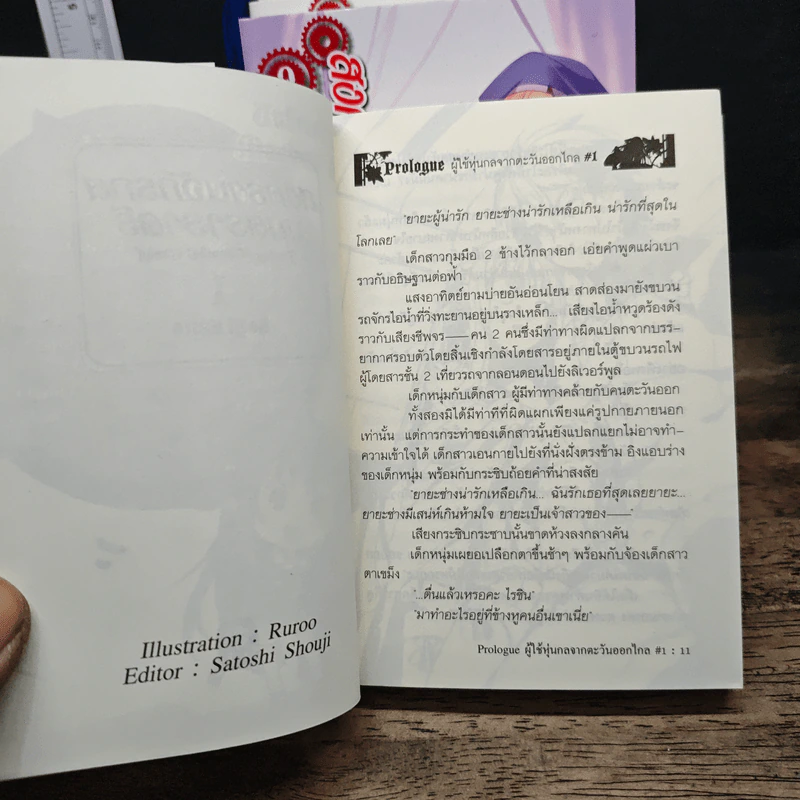 สงค
Illustration : Ruroo
Editor : Satoshi Shouji
Prologue ผู้ใช้หุ่นกลจากตะวันออกไกล #1
"ยายะผู้น่ารัก ยายะช่างน่ารักเหลือเกิน น่ารักที่สุดใน
โลกเลย"
เด็กสาวกุมมือ 2 ข้างไว้กลางอก เอ่ยคำพูดแผ่วเบา
ราวกับอธิษฐานต่อฟ้า
แสงอาทิตย์ยามบ่ายอันอ่อนโยน สาดส่องมายังขบวน
รถจักรไอน้ำที่วิ่งทะยานอยู่บนรางเหล็ก... เสียงไอน้ำหวูดร้องดัง
ราวกับเสียงชีพจร——คน 2 คนซึ่งมีท่าทางผิดแปลกจากบรร-
ยากาศรอบตัวโดยสิ้นเชิงกำลังโดยสารอยู่ภายในตู้ขบวนรถไฟ
ผู้โดยสารชั้น 2 เที่ยวรถจากลอนดอนไปยังลิเวอร์พูล
เด็กหนุ่มกับเด็กสาว ผู้มีท่าทางคล้ายกับคนตะวันออก
ทั้งสองมิได้มีท่าทีที่ผิดแผกเพียงแค่รูปกายภายนอก
เท่านั้น แต่การกระทำของเด็กสาวนั้นยังแปลกแยกไม่อาจทำ-
ความเข้าใจได้ เด็กสาวเอนกายไปยังที่นั่งฝั่งตรงข้าม อิงแอบร่าง
ของเด็กหนุ่ม พร้อมกับกระซิบถ้อยคำที่น่าสงสัย
"ยายะช่างน่ารักเหลือเกิน... ฉันรักเธอที่สุดเลยยายะ...
ยายะช่างมีเสน่ห์เกินห้ามใจ ยายะเป็นเจ้าสาวของ——"
เสียงกระซิบกระซาบนั้นขาดห้วงลงกลางคัน
เด็กหนุ่มเผยอเปลือกตาขึ้นช้าๆ พร้อมกับจ้องเด็กสาว
ตาเขม็ง
"...ตื่นแล้วเหรอคะ ไรชิน"
"มาทำอะไรอยู่ที่ข้างหูคนอื่นเขาเนี่ย"
Prologue ผู้ใช้หุ่นกลจากตะวันออกไกล #1 : 11